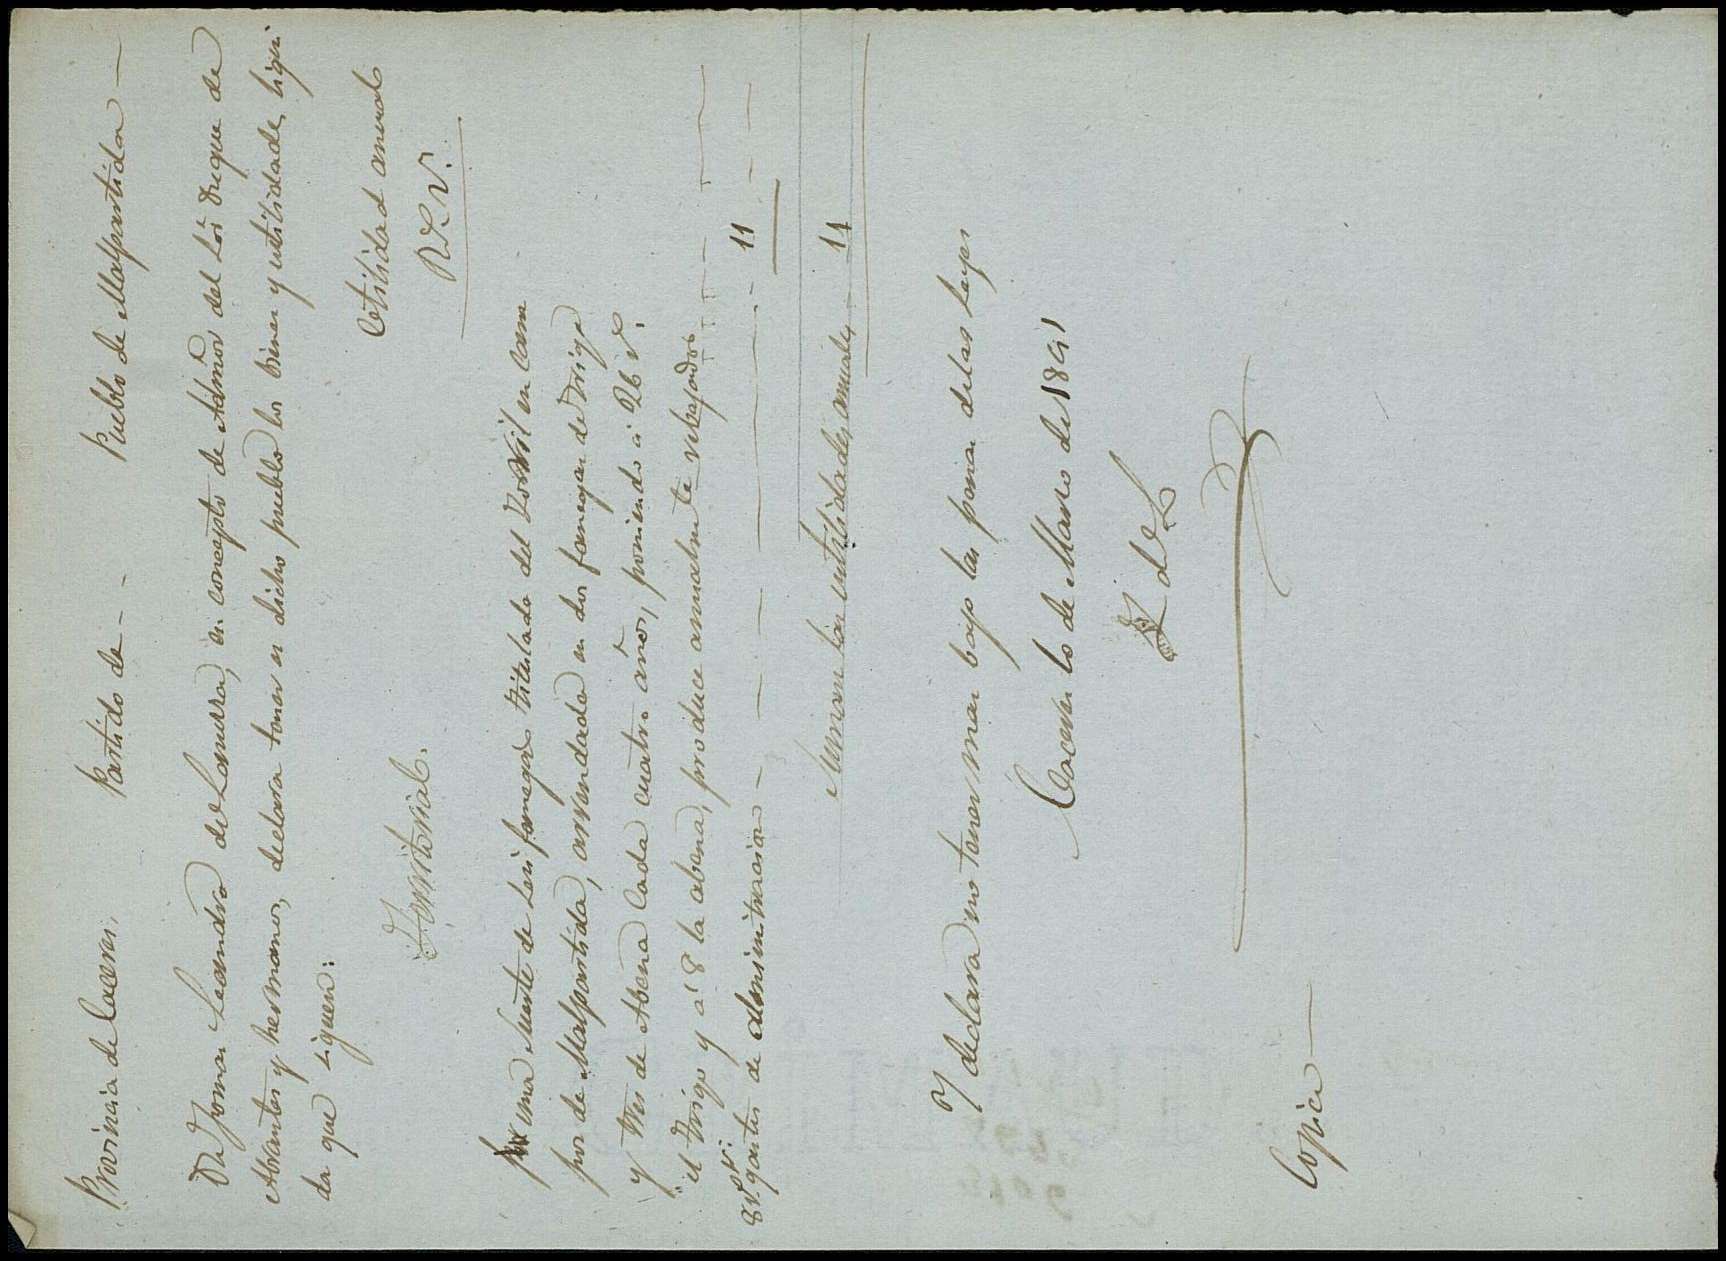 Provincia de Caceres. Partido de - - Pueblo de Malpartida -
Dn. Tomas Leandro de Lamerra, en concepto de Admor del Sor Duque de
Abrantes y hermanos, declara tener en dicho pueblo los bienes y utilidades liqui
das que siguen:
Utilidad anual
Territorial.
R. V.
Por una Suerte de Seis fanegas titulada del en Cam
po de Malpartida, arrendada en dos fanegas de Trigo
y tres de Abena cada cuatro años, poniendo á 26 r.
el trigo y á 8 la abena, produce anualmente rebajados
gastos de administracion - 11
Suman las utilidades anuales - 11
Y declara no tener mas bajo las penas de las Leyes
Caceres de Marzo de 1891
T. de L
Copia